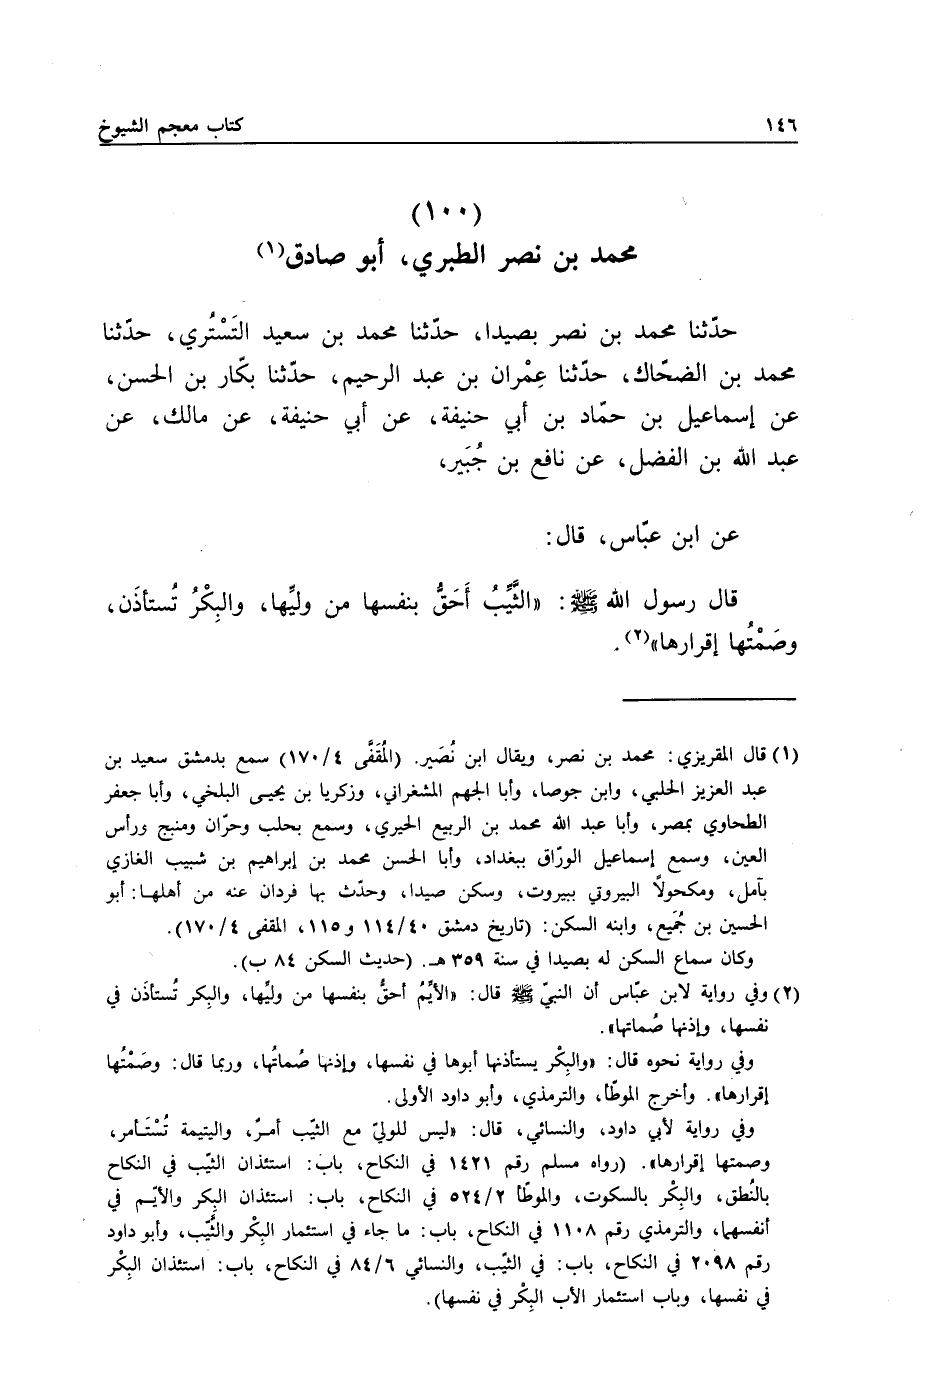 ١٤٦ كتاب معجم الشيوخ
(١٠٠)
محمد بن نصر الطبري، أبو صادق(١)
حدّثنا محمد بن نصر بصيدا، حدّثنا محمد بن سعيد التَسْتُري، حدّثنا
محمد بن الضحّاك، حدّثنا عِمْران بن عبد الرحيم، حدّثنا بكّار بن الحسن،
عن إسماعيل بن حمّاد بن أبي حنيفة، عن أبي حنيفة، عن مالك، عن
عبد الله بن الفضل، عن نافع بن جُبَير،
عن ابن عبّاس، قال:
قال رسول الله ﷺ: «الثَّيِّبُ أَحَقُّ بنفسها من وليِّها، والبِكْرُ تُستأذَن،
وصَمْتُها إقرارها»(٢).
(١) قال المقريزي: محمد بن نصر، ويقال ابن نُصَير. (المُقَفَّى ١٧٠/٤) سمع بدمشق سعيد بن
عبد العزيز الحلبي، وابن جوصا، وأبا الجهم المشغراني، وزكريا بن يحيى البلخي، وأبا جعفر
الطحاوي بمصر، وأبا عبد الله محمد بن الربيع الحيري، وسمع بحلب وحرّان ومنبج ورأس
العين، وسمع إسماعيل الورّاق ببغداد، وأبا الحسن محمد بن إبراهيم بن شبيب الغازي
بآمل، ومكحولاً البيروتي ببيروت، وسكن صيدا، وحدّث بها فردان عنه من أهلها: أبو
الحسين بن جُمَيع، وابنه السكن: (تاريخ دمشق ١١٤/٤٠ و١١٥، المقفى ١٧٠/٤).
وكان سماع السكن له بصيدا في سنة ٣٥٩ هـ. (حديث السكن ٨٤ ب).
(٢) وفي رواية لابن عبّاس أن النبيّ ﷺ قال: «الأيِّمُ أحقُّ بنفسها من وليِّها، والبكر تُستأذَن في
نفسها، وإذنها صُماتها».
وفي رواية نحوه قال: «والبِكْر يستأذنها أبوها في نفسها، وإذنها صُماتُها، وربما قال: وصَمْتُها
إقرارها». وأخرج الموطّأ، والترمذي، وأبو داود الأولى.
وفي رواية لأبي داود، والنسائي، قال: «ليس للوليّ مع الثيّب أمرٌ، واليتيمة تُسْتَأمر،
وصمتها إقرارها». (رواه مسلم رقم ١٤٢١ في النكاح، باب: استئذان الثيّب في النكاح
بالنُطق، والبِكْر بالسكوت، والموطّأ ٥٢٤/٢ في النكاح، باب: استئذان البكر والأيّم في
أنفسهما، والترمذي رقم ١١٠٨ في النكاح، باب: ما جاء في استئمار البِكْر والثَّيّب، وأبو داود
رقم ٢٠٩٨ في النكاح، باب: في الثيّب، والنسائي ٨٤/٦ في النكاح، باب: استئذان البِكْر
في نفسها، وباب استئمار الأب البِكْر في نفسها).